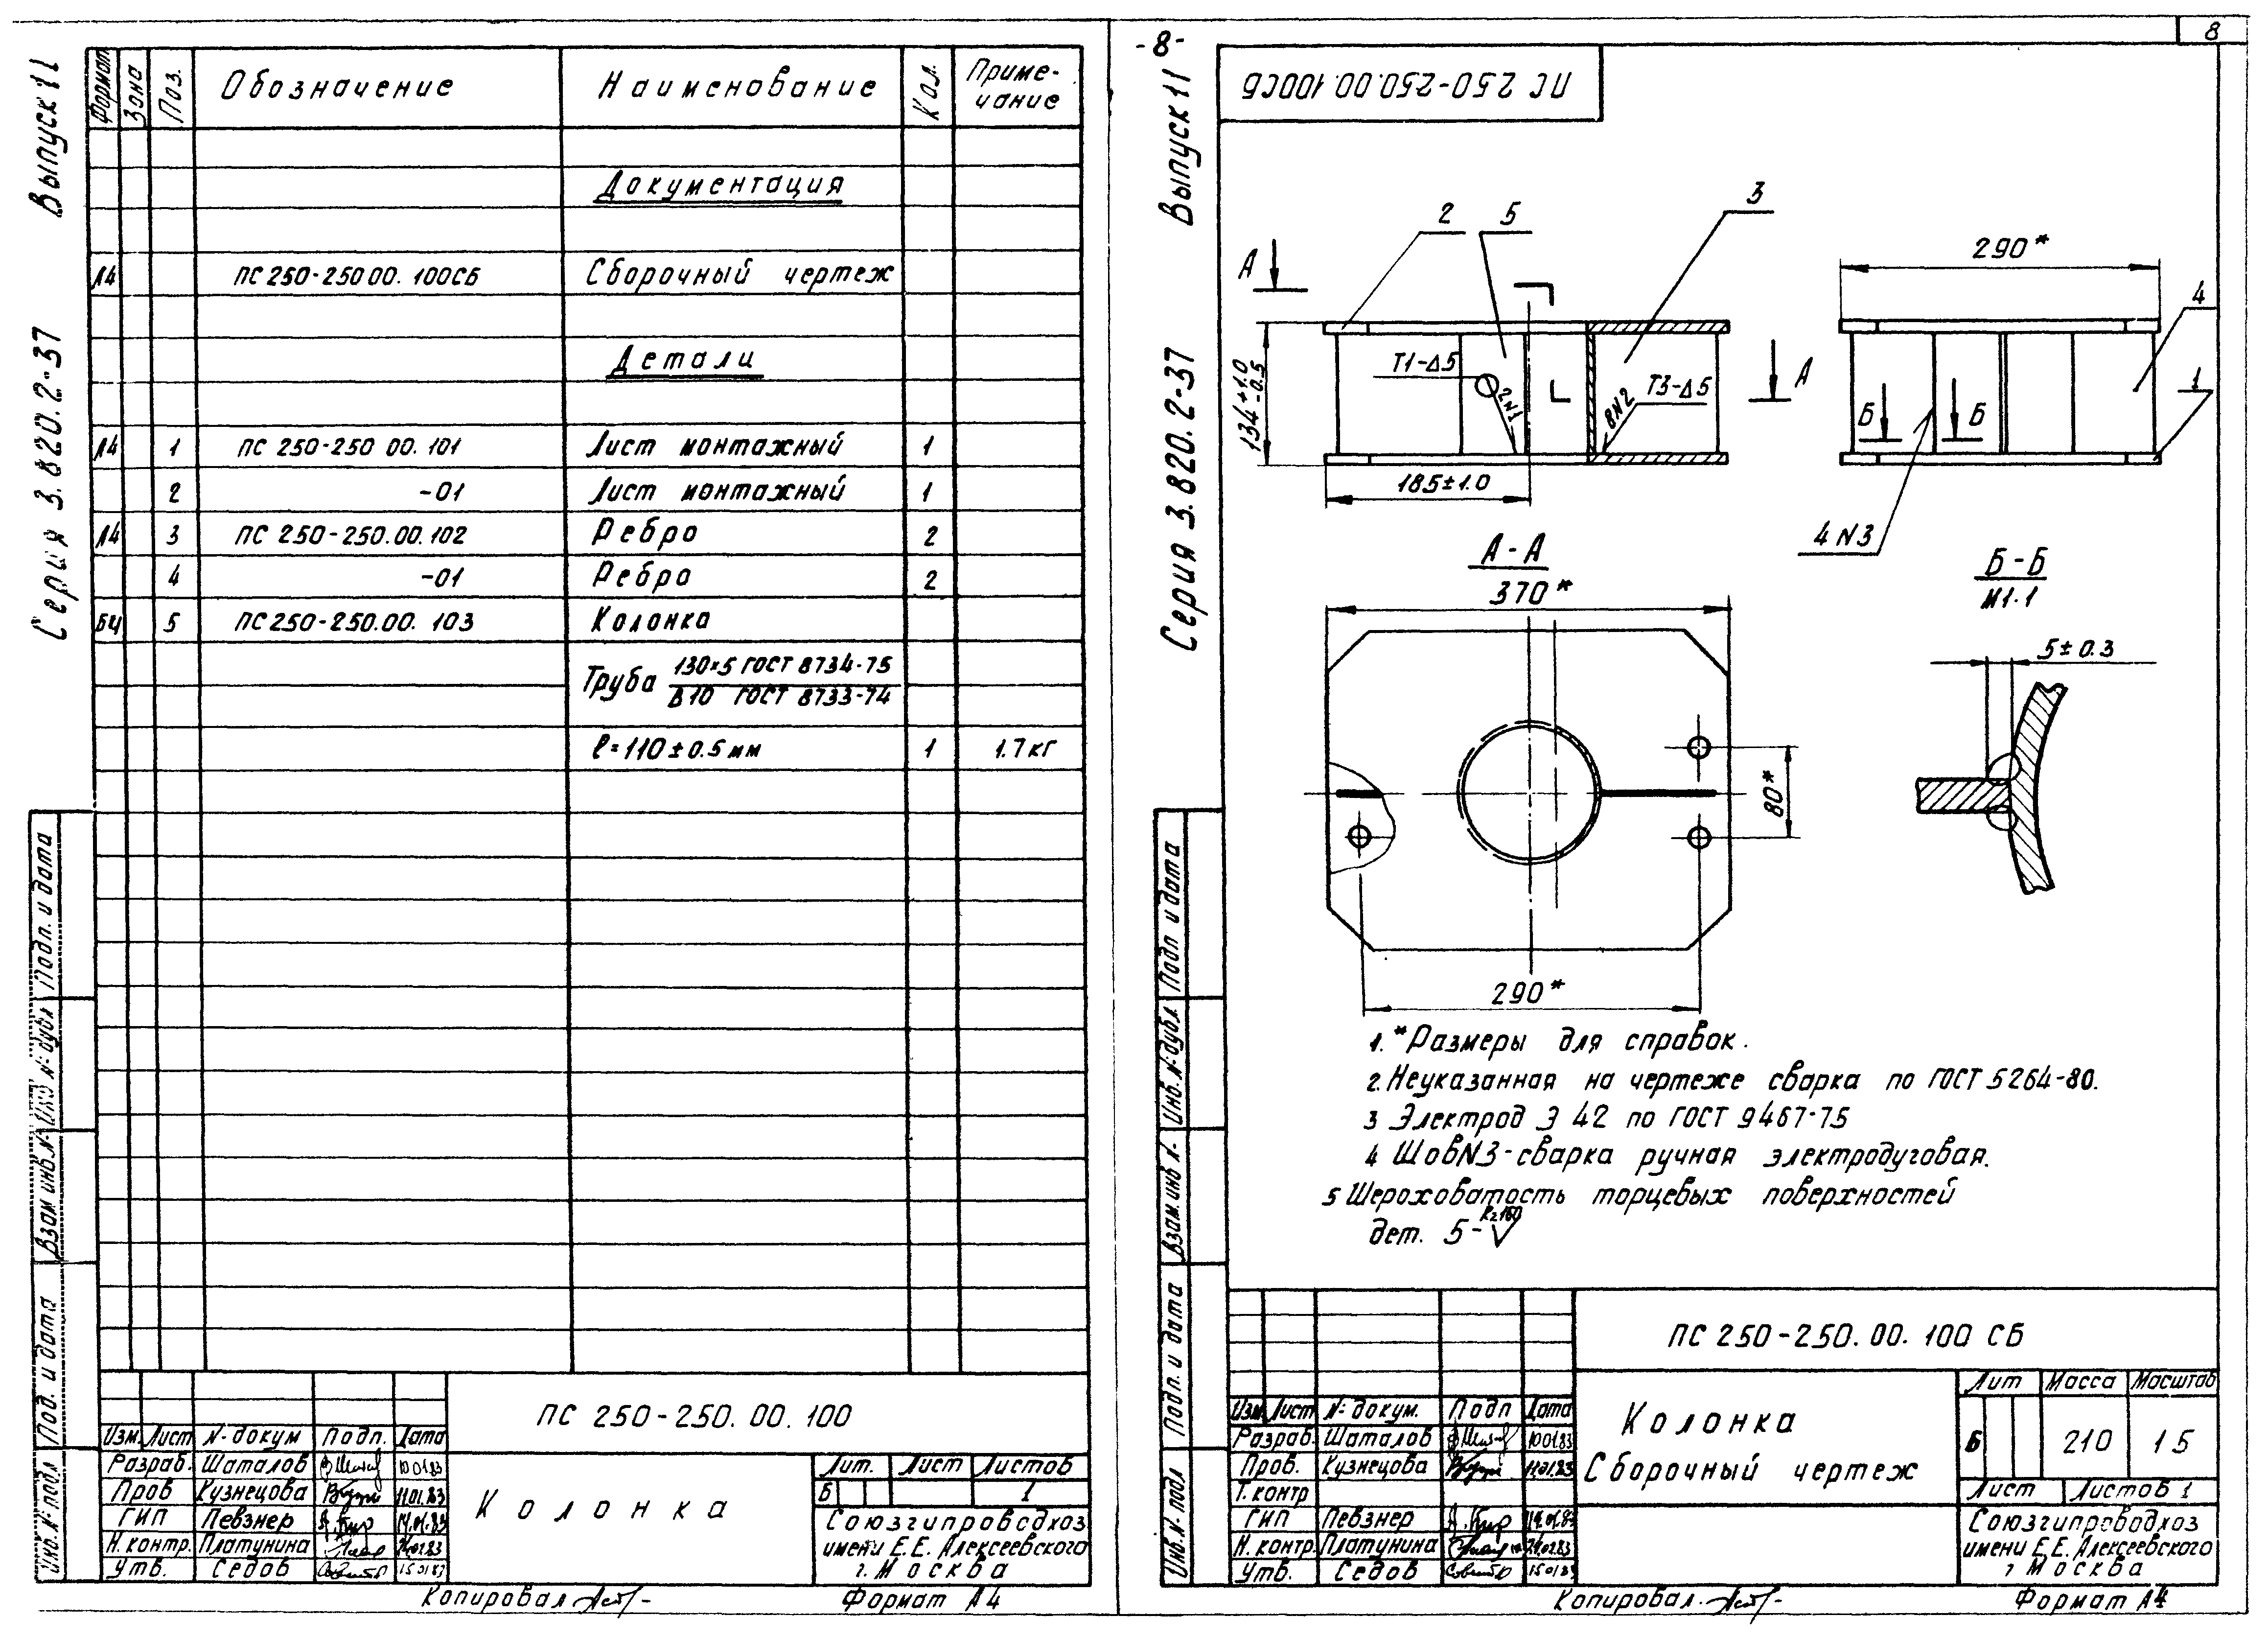 Серия 3.820.2-37 Выпуск 11
Формат Зона Поз. Обозначение Наименование Кол. Приме-
чание
Документация
А4 ПС 250-250 00. 100СБ Сборочный чертеж
Детали
А4 1 ПС 250-250 00. 101 Лист монтажный 1
2 -01 Лист монтажный 1
А4 3 ПС 250-250.00.102 Ребро 2
4 -01 Ребро 2
БЧ 5 ПС 250-250.00. 103 Колонка
Труба 130×5 ГОСТ 8734-75
В10 ГОСТ 8733-74
ℓ=110±0.5 мм 1 1.7 кг
Подп. и дата
Инв N° дубл
Взам инв. N°
Под. и дата
Инв. N° подл
ПС 250-250. 00. 100
Изм. Лист N° докум Подп. Дата
Разраб. Шаталов 10 01.83
Пров Кузнецова 11.01.83
ГИП Певзнер 14.01.83
Н. контр. Платунина
Утв. Седов
Колонка
Лит. Лист Листов
Б 1
Союзгипроводхоз
имени Е.Е. Алексеевского
г. Москва
Копировал
Формат А4
-8-
8
Серия 3.820.2-37 Выпуск 11
ПС 250-250.00.100СБ
2 5 3
А
290*
4
134 +1.0 -0.5
Т1-Δ5
2N1
8N2
Т3-Δ5
А
Б Б
1
185±1.0
4 N3
А-А
370*
Б-Б
М1.1
5±0.3
80*
290*
1. *Размеры для справок.
2. Неуказанная на чертеже сварка по ГОСТ 5264-80.
3 Электрод Э 42 по ГОСТ 9467-75
4 Шов N3-сварка ручная электродуговая.
5 Шероховатость торцевых поверхностей
дет. 5- Rz160
Подп и дата
Инв. N° дубл
Взам. инв N°
Подп. и дата
Инв. N° подл
ПС 250-250. 00. 100 СБ
Изм. Лист N° докум. Подп Дата
Разраб. Шаталов 10 01.83
Пров. Кузнецова 11.01.83
Т. контр
ГИП Певзнер 14.01.83
Н. контр Платунина
Утв. Седов
Колонка
Сборочный чертеж
Лит Масса Масштаб
Б 210 1 5
Лист Листов 1
Союзгипроводхоз
имени Е.Е. Алексеевского
г Москва
Копировал.
Формат А4